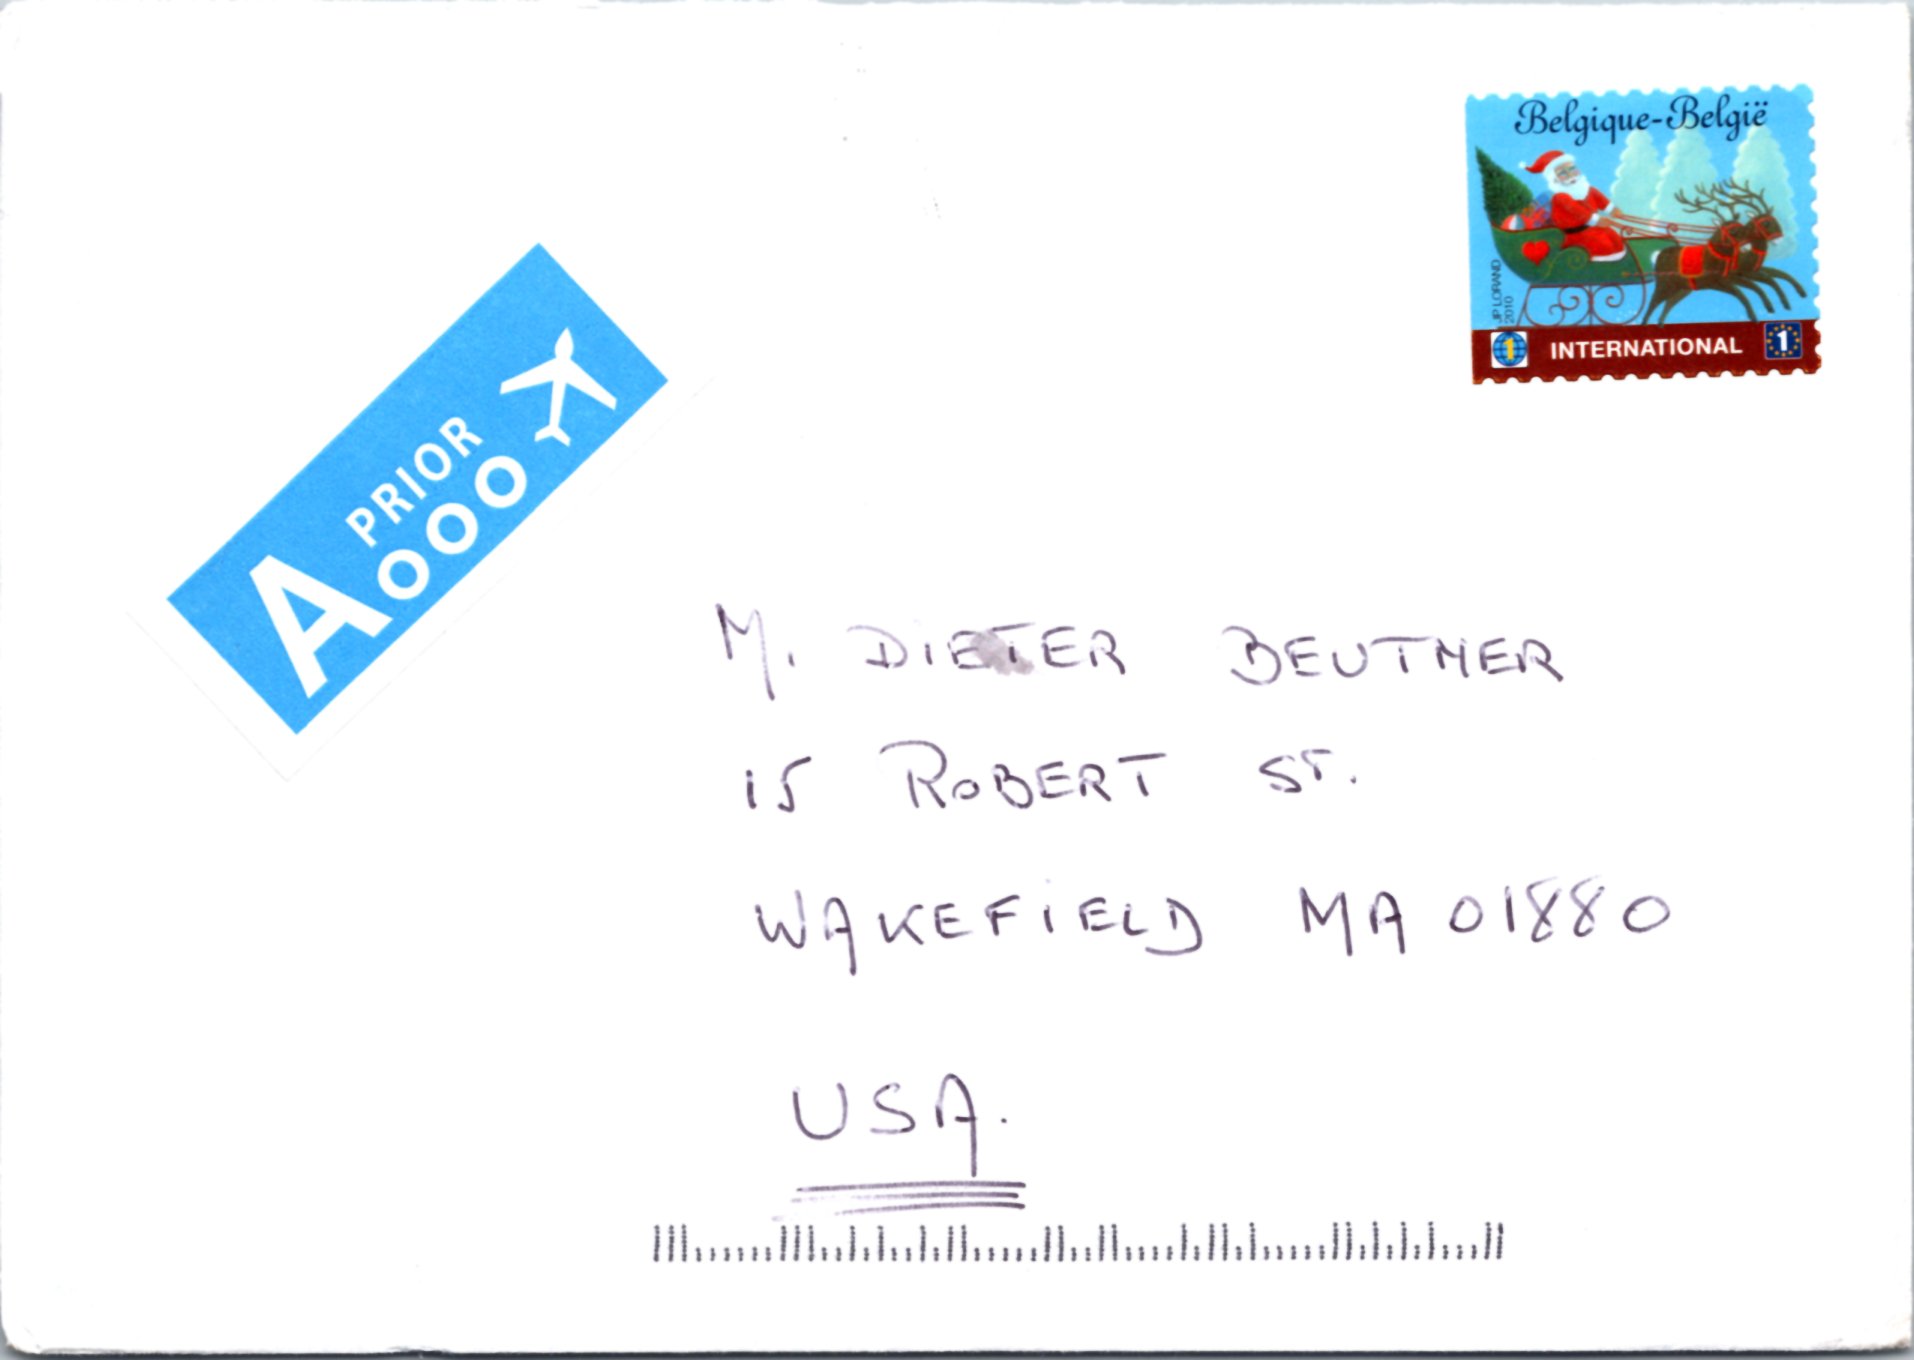 Belgique-België
JP LORAND
2010
1 INTERNATIONAL 1
A PRIOR
M. DIETER BEUTNER
15 ROBERT ST.
WAKEFIELD MA 01880
USA.